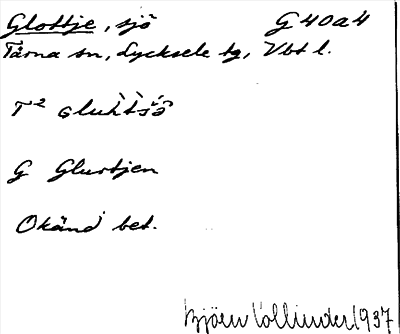 Glottje, sjö G 40a4
Tärna sn, Lycksele tg, Vbt l.
T²
G Glurtjen
Okänd bet.
Björn Collinder 1937